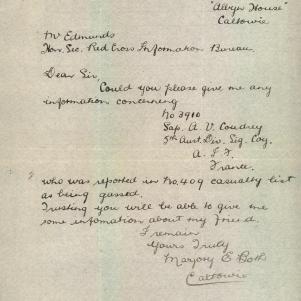 "Alwyn House"
Caltowie
Mr Edmunds
Hon. Sec. Red Cross Infomation Bureau.
Dear Sir,
Could you please give me any
infomation concerning
No 3910
Sap. A. V. Coudrey
5th Aust. Div. Sig. Coy.
A. I. F.
France.
who was reported in No. 409 casualty list
as being gassed.
Trusting you will be able to give me
some infomation about my friend.
I remain
Yours Truly
Marjory E Both
Caltowie